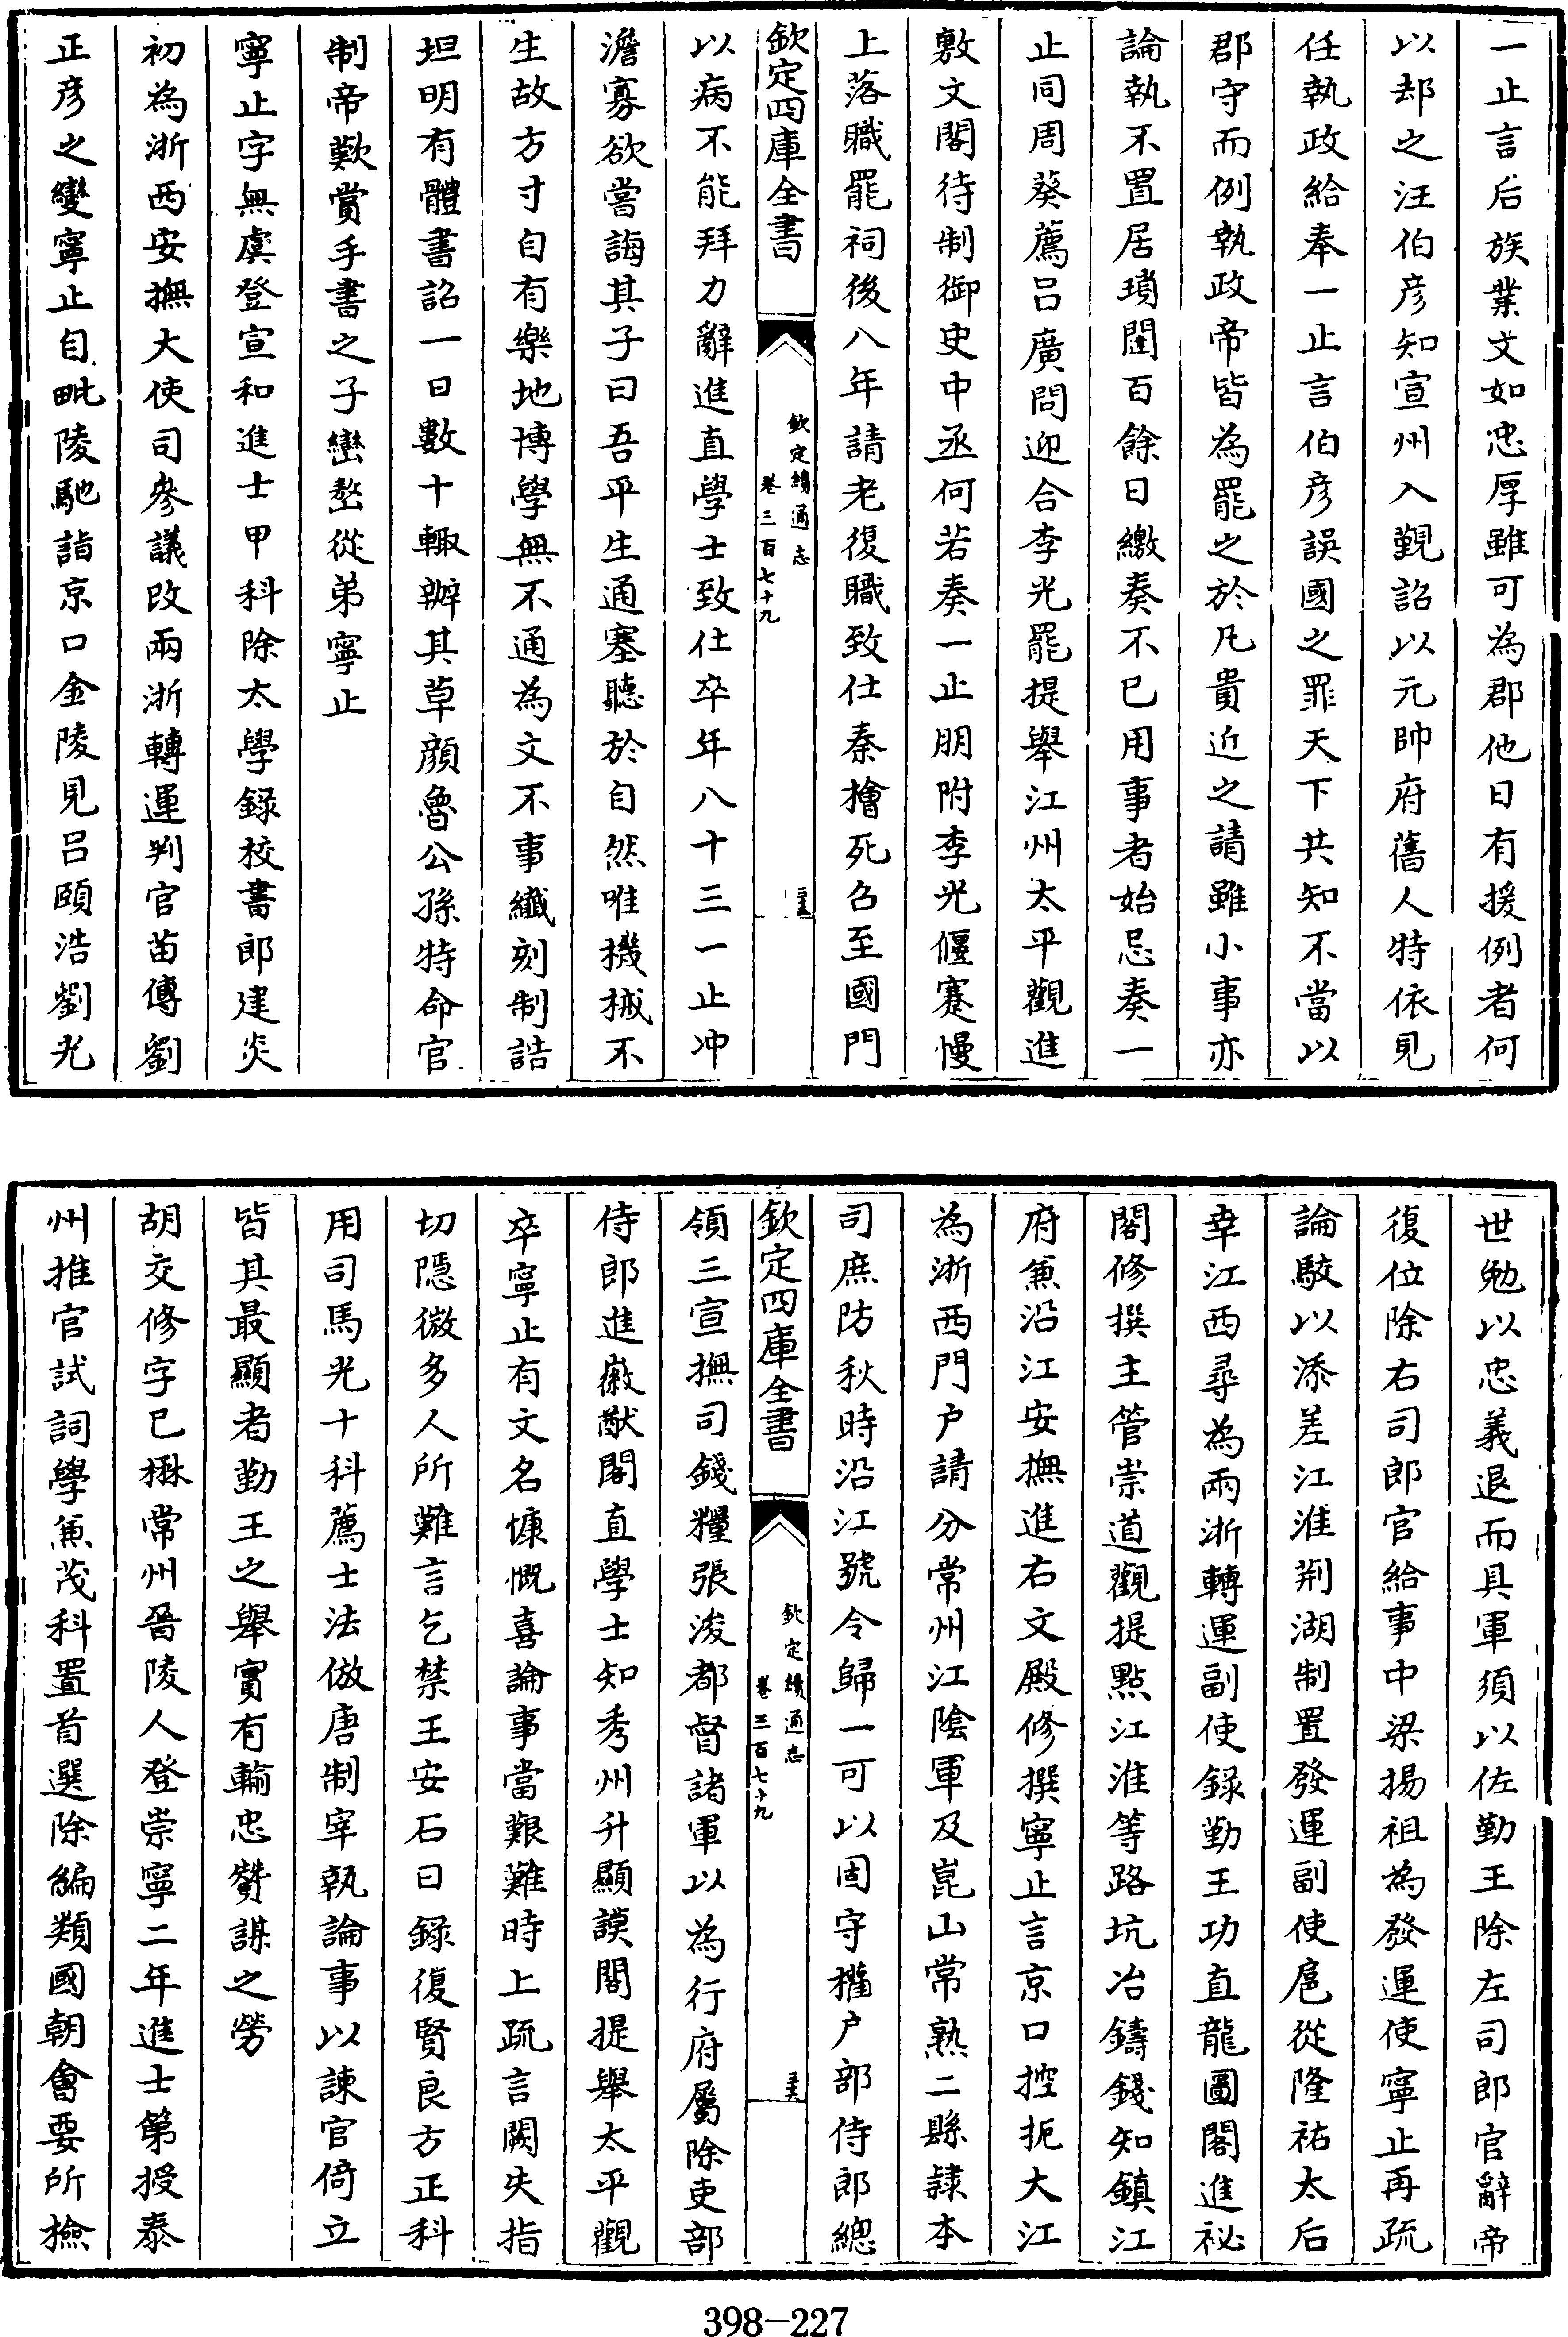 一止言后族業文如忠厚雖可為郡他日有援例者何
以却之汪伯彥知宣州入覲詔以元帥府舊人特依見
任執政給奉一止言伯彥誤國之罪天下共知不當以
郡守而例執政帝皆為罷之於凡貴近之請雖小事亦
論執不置居瑣闥百餘日繳奏不已用事者始忌奏一
止同周葵薦呂廣問迎合李光罷提舉江州太平觀進
敷文閣待制御史中丞何若奏一止朋附李光偃蹇慢
上落職罷祠後八年請老復職致仕秦檜死召至國門
欽定四庫全書
欽定續通志
卷三百七十九
三五
以病不能拜力辭進直學士致仕卒年八十三一止沖
澹寡欲嘗誨其子曰吾平生通塞聽於自然唯機械不
生故方寸自有樂地博學無不通為文不事纖刻制誥
坦明有體書詔一日數十輒辦其草顏魯公孫特命官
制帝歎賞手書之子巒嶅從弟寧止
寧止字無虞登宣和進士甲科除太學錄校書郎建炎
初為浙西安撫大使司參議改兩浙轉運判官苗傅劉
正彥之變寧止自毗陵馳詣京口金陵見呂頤浩劉光
世勉以忠義退而具軍須以佐勤王除左司郎官辭帝
復位除右司郎官給事中梁揚祖為發運使寧止再疏
論駮以添差江淮荊湖制置發運副使扈從隆祐太后
幸江西尋為兩浙轉運副使錄勤王功直龍圖閣進祕
閣修撰主管崇道觀提點江淮等路坑冶鑄錢知鎮江
府兼沿江安撫進右文殿修撰寧止言京口控扼大江
為浙西門户請分常州江陰軍及崑山常熟二縣隸本
司庶防秋時沿江號令歸一可以固守權户部侍郎總
欽定四庫全書
欽定續通志
卷三百七十九
三六
領三宣撫司錢糧張浚都督諸軍以為行府屬除吏部
侍郎進徽猷閣直學士知秀州升顯謨閣提舉太平觀
卒寧止有文名慷慨喜論事當艱難時上疏言闕失指
切隱微多人所難言乞禁王安石日錄復賢良方正科
用司馬光十科薦士法倣唐制宰執論事以諫官倚立
皆其最顯者勤王之舉實有輸忠贊謀之勞
胡交修字已楙常州晉陵人登崇寧二年進士第授泰
州推官試詞學兼茂科置首選除編類國朝會要所檢
398-227